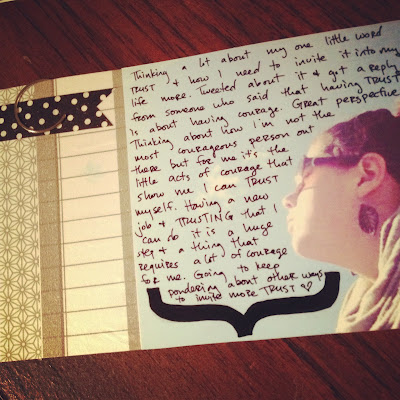 Thinking a lot about my one little word
TRUST & how I need to invite it into my
life more. Tweeted about it & got a reply
from someone who said that having TRUST
is about having courage. Great perspective.
Thinking about how I'm not the
most courageous person out
there but for me it's the
little acts of courage that
show me I can TRUST
myself. Having a new
job & TRUSTING that I
can do it is a huge
step & a thing that
requires a lot of courage
for me. Going to keep
pondering about other ways
to invite more TRUST ♡